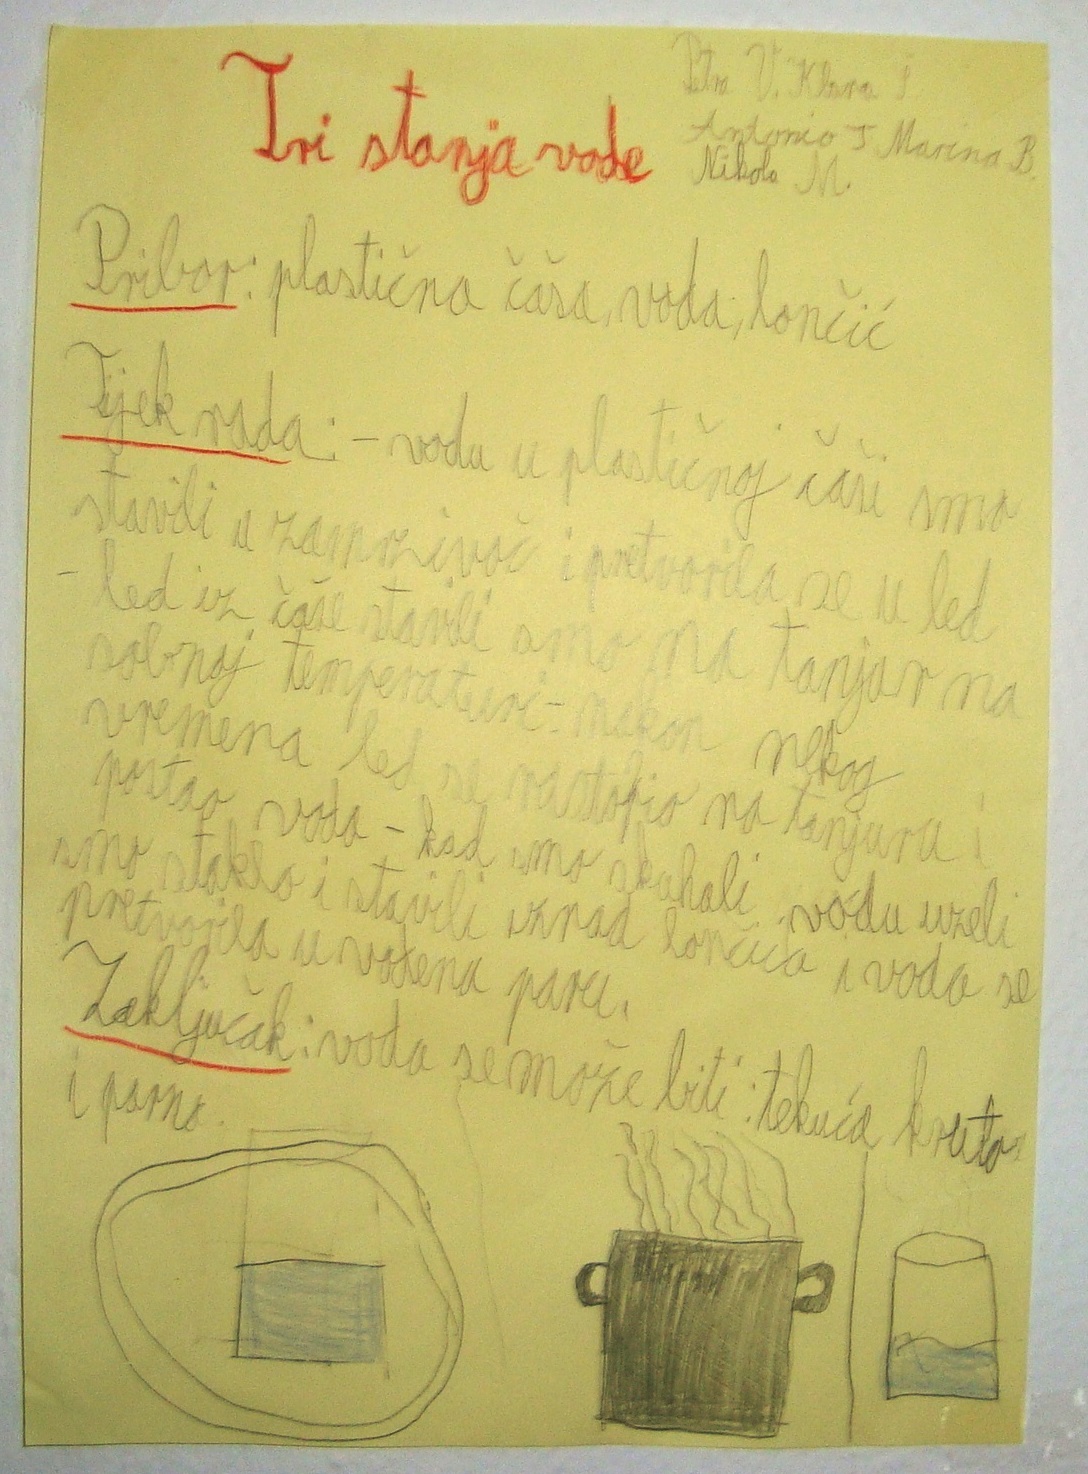 Tri stanja vode
Petra V. Klara
Antonio T Marina B.
Nikola M.
Pribor: plastična čaša, voda, lončić
Tijek rada: - vodu u plastičnoj čaši smo
stavili u zamrzivač i pretvorila se u led
- led iz čaše stavili smo na tanjur na
sobnoj temperaturi - nakon nekog
vremena led se rastopio na tanjuru i
postao voda - kad smo skuhali vodu uzeli
smo staklo i stavili iznad lončića i voda se
pretvorila u vodena paru.
Zaključak: voda se može biti: tekuća kruta
i parna.